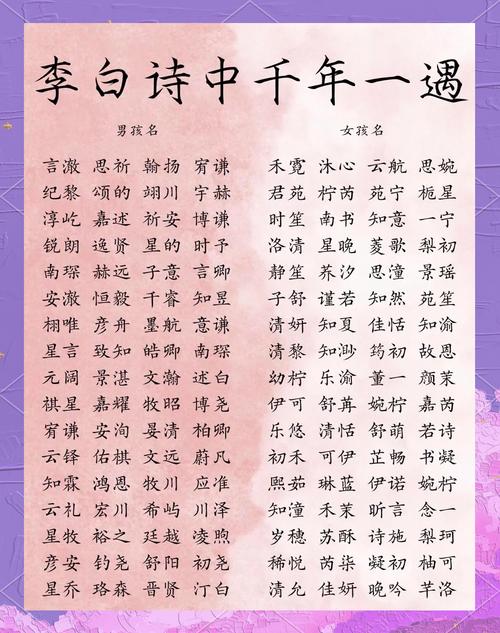 李白诗中千年一遇
男孩名 女孩名
言澈 思祈 翰扬 宥谦 禾霓 沐心 云航 思婉
纪黎 颂的 翊川 宇赫 君苑 柠芮 苑宁 栀星
淳屹 嘉述 祈安 博谦 时笙 南书 知意 一宁
锐朗 逸贤 星的 时予 洛清 星晚 菱歌 梨初
南琛 赫远 子意 言卿 静笙 荞汐 思潼 景瑶
安澈 恒毅 千睿 知昱 子舒 谨若 知然 苑笙
栩唯 彦舟 墨航 意谦 清妍 知夏 佳恬 知渝
星言 致知 皓卿 南琛 清黎 知渺 筠初 故思
元阔 景湛 文瀚 述白 幼柠 乐渝 董一 颜茉
祺星 嘉耀 牧昭 博尧 伊可 舒苒 婉柠 嘉芮
宥谦 安洵 晏清 柏卿 乐悠 清恬 舒萌 若诗
云铎 佑棋 文远 蔚凡 初禾 可伊 芷畅 书凝
知霖 鸿思 牧川 应准 熙茹 琳蓝 伊诺 婉柠
云礼 宏川 希屿 川泽 知潼 禾茉 昕言 念一
星牧 裕之 廷越 凌煦 岁穗 苏酥 诗施 梨珂
彦安 钧尧 舒阳 初尧 稀悦 芮柒 凝初 柚可
星乔 珞森 晋贤 汀白 清允 佳妍 晚吟 芊洛